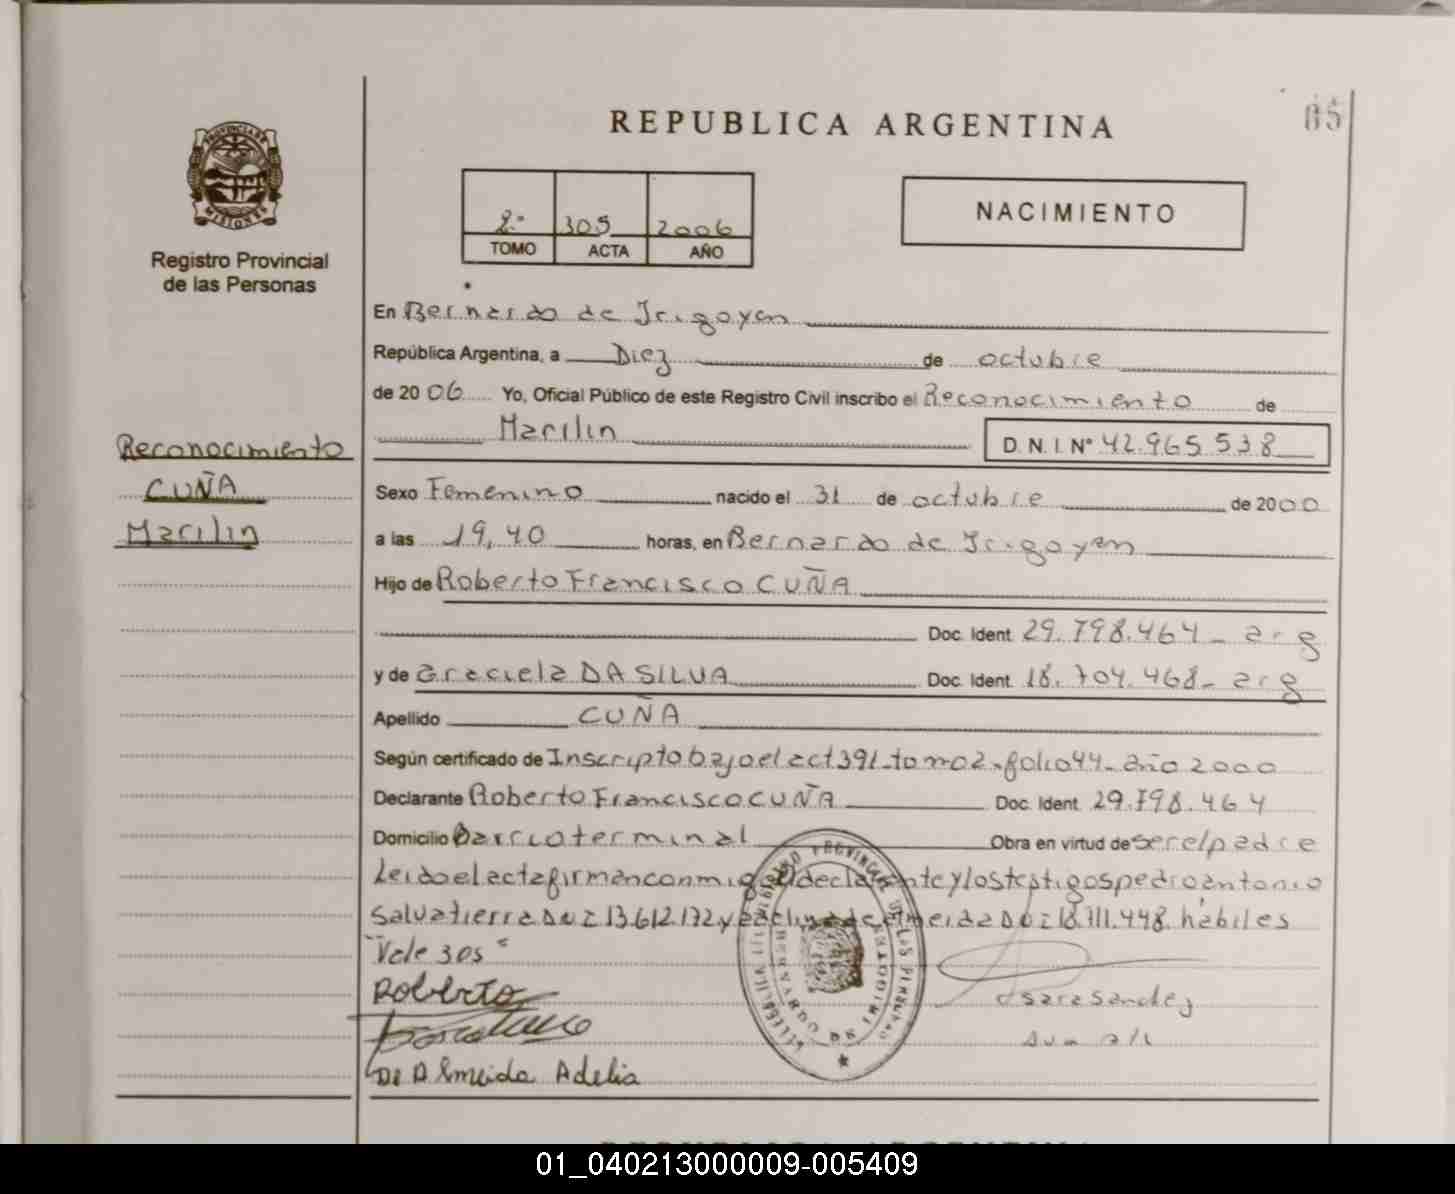 REPUBLICA ARGENTINA
65
PROVINCIA DE MISIONES
Registro Provincial
de las Personas
2º 305 2006
TOMO ACTA AÑO
NACIMIENTO
En Bernardo de Irigoyen
República Argentina, a Diez de octubre
de 2006 Yo, Oficial Público de este Registro Civil inscribo el Reconocimiento de
Marilin D.N.I. Nº 42.965.538
Reconocimiento
CUÑA
Marilin
Sexo Femenino nacido el 31 de octubre de 2000
a las 19,40 horas, en Bernardo de Irigoyen
Hijo de Roberto Francisco CUÑA
Doc. Ident. 29.798.464 - arg
y de Graciela DA SILVA Doc. Ident. 18.704.468 - arg
Apellido CUÑA
Según certificado de Inscripto bajo el act 391 - tomo 2 - folio 44 - año 2000
Declarante Roberto Francisco CUÑA Doc. Ident. 29.798.464
Domicilio Barrio terminal Obra en virtud de ser el padre
Leido el acta firman conmigo el declarante y los testigos pedro antonio
Salvatierra DNI 13.612.172 y de almeida DNI 18.711.448. habiles
"Vale 305"
Roberto
De Almeida Adelia
sara sandez
01_040213000009-005409